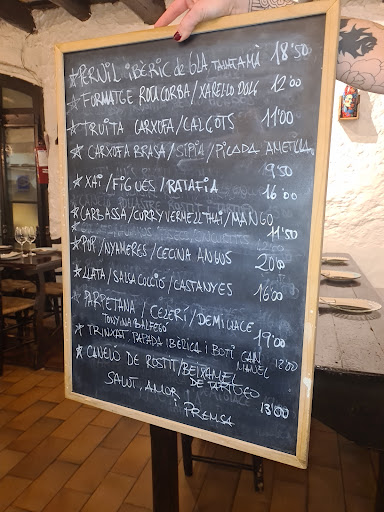 ★ PERNIL IBÈRIC de GLA TALLAT A MÀ 18'50
★ FORMATGE ROCACORBA/XAREL·LO DOLÇ 12'00
★ TRUITA CARXOFA/CALÇOTS 11'00
★ CARXOFA BRASA/SIPIA/PICADA AMETLLA
9'50
★ XAI/FIGUES/RATAFIA 16'00
★ CARBASSA/CURRY VERMELL THAI/MANGO
11'50
★ POP/NYAMERES/CECINA ANGUS 20'00
★ LLATA/SALSA COCCIÓ/CASTANYES 16'00
★ PARPETANA/CELERI/DEMIGLACE
TONYINA BALFEGÓ 19'00
★ TRINXAT PAPADA IBÈRICA I BOTÍ CAN MANEL 12'00
★ CANELÓ DE ROSTIT/BEIXAMEL
DE TARTUFO
SALUT, AMOR 13'00
I PREMSA